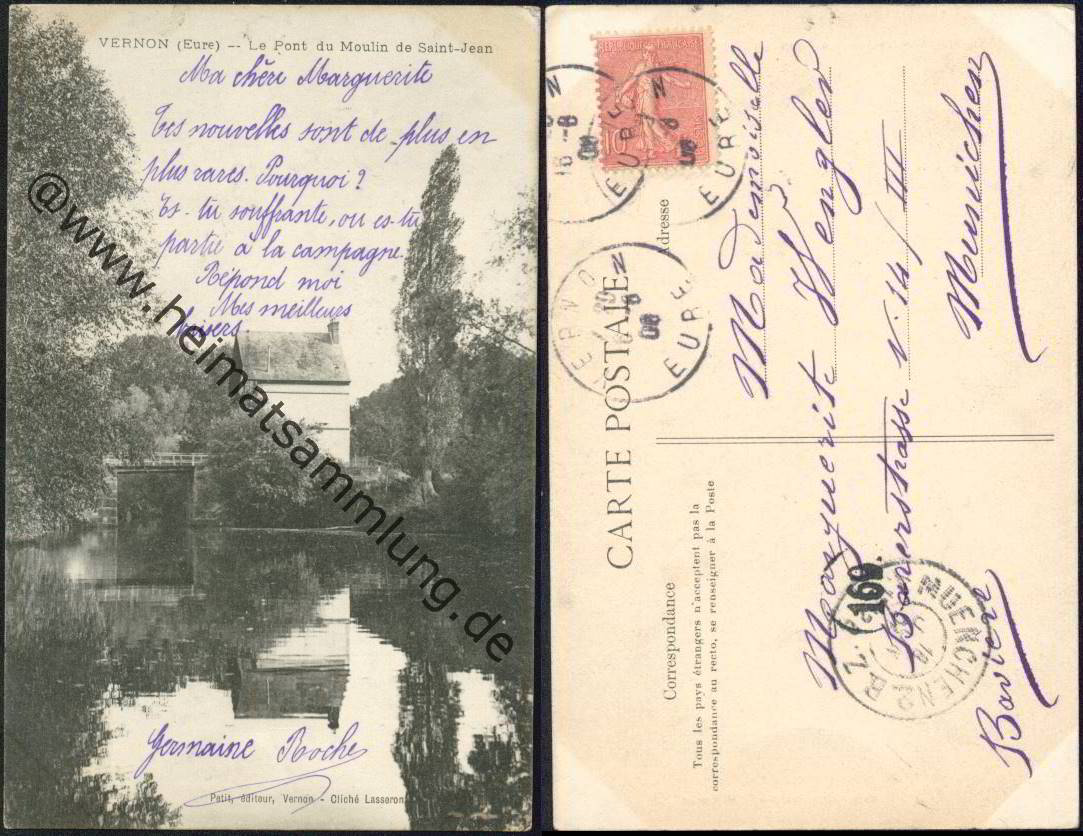 VERNON (Eure) -- Le Pont du Moulin de Saint-Jean
Ma chère Marguerite
Tes nouvelles sont de plus en
plus rares. Pourquoi?
Es-tu souffrante, ou es-tu
partie à la campagne
Répond moi
Mes meilleurs
@www.heimatsammlung.de
Germaine Roche
Petit, éditeur, Vernon - Cliché Lasseron
REPUBLIQUE FRANÇAISE
10
EURE
EURE
VERNON
EURE
CARTE POSTALE
Adresse
Mademoiselle
Marguerite Wengler
v. 14/III
Munichen
Bavière
Correspondance
Tous les pays étrangers n'acceptent pas la
correspondance au recto, se renseigner à la Poste
160
MUENCHEN